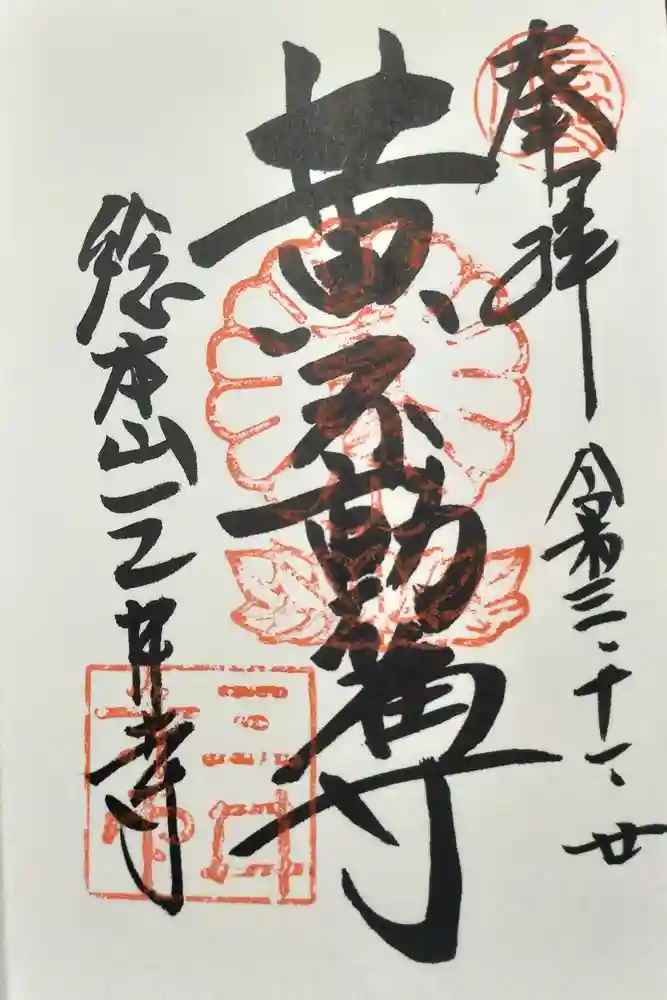 奉拝
令和三・十一・廿
黄不動尊
総本山三井寺